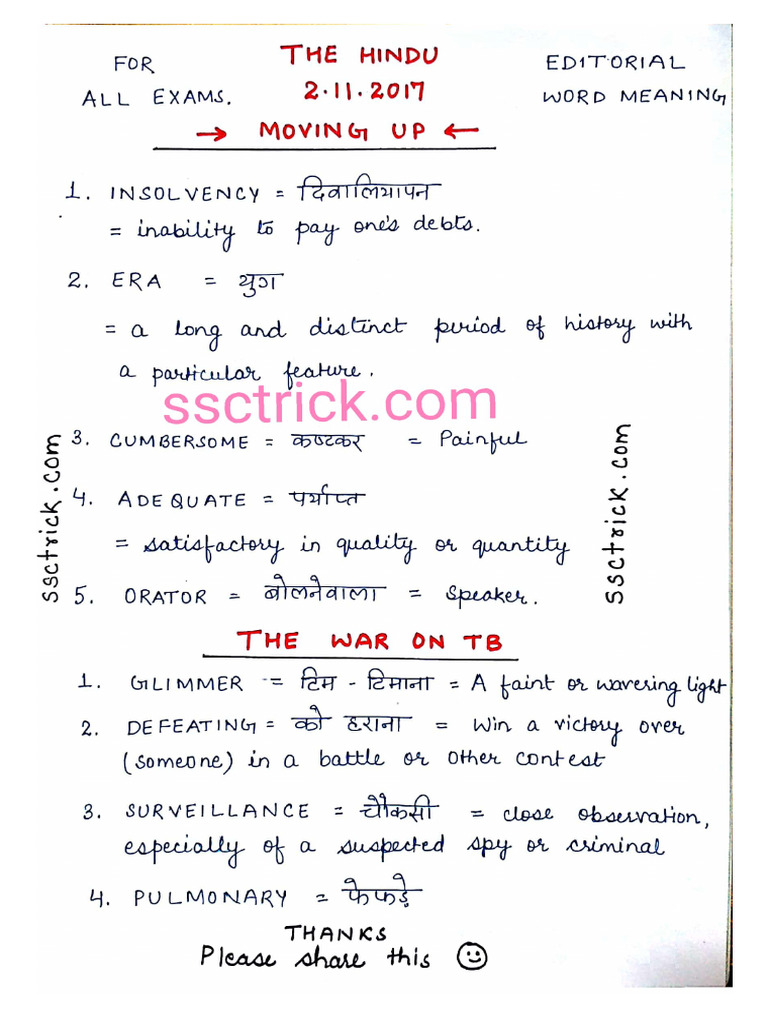 FOR THE HINDU EDITORIAL
ALL EXAMS. 2.11.2017 WORD MEANING
→ MOVING UP ←
1. INSOLVENCY = दिवालियापन
= inability to pay one's debts.
2. ERA = युग
= a long and distinct period of history with
a particular feature.
ssctrick.com
3. CUMBERSOME = कष्टकर = Painful
ssctrick.com
ssctrick.com
4. ADEQUATE = पर्याप्त
= satisfactory in quality or quantity
5. ORATOR = बोलनेवाला = Speaker.
THE WAR ON TB
1. GLIMMER = टिम - टिमाना = A faint or wavering light
2. DEFEATING = को हराना = Win a victory over
(someone) in a battle or other contest
3. SURVEILLANCE = चौकसी = close observation,
especially of a suspected spy or criminal
4. PULMONARY = फेफड़े
THANKS
Please share this ☺